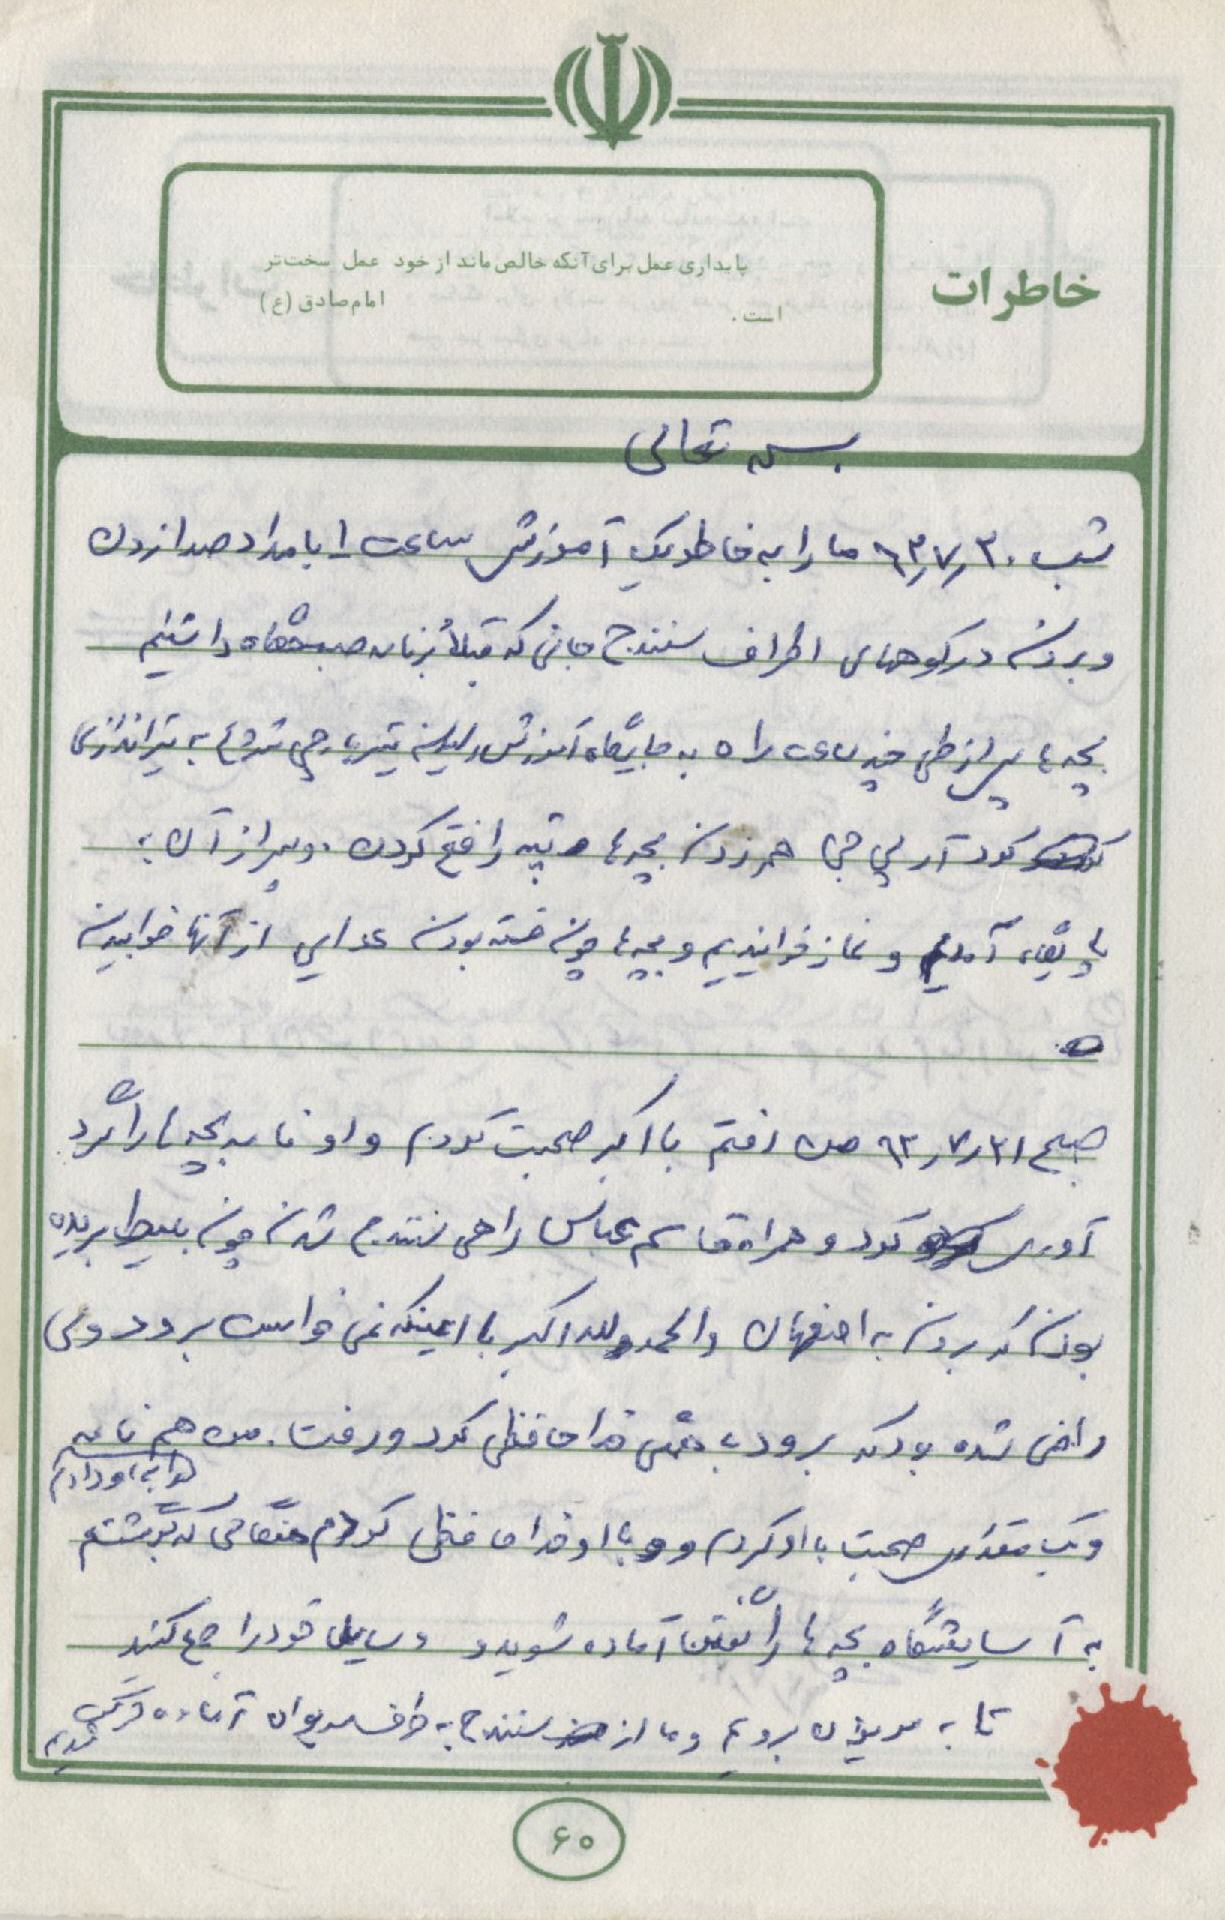 خاطرات
پایداری عمل برای آنکه خالص ماند از خود عمل سخت‌تر
است. امام صادق (ع)
بسمه تعالی
شب ۶۳٫۷٫۳۰ ما را به خاطر یک آموزش ساعت ۱ بامداد صدا زدن
و بردن در کوههای اطراف سنندج جائی که قبلاً برنامه صبحگاه داشتیم
بچه ها پس از طی چند ساعت راه به جایگاه آموزش رسیدن تیربارچی شروع به تیراندازی
کرد آر پی جی هم زدن بچه ها تپه را فتح کردن. و پس از آن به
پایگاه آمدیم و نماز خواندیم و بچه ها چون خسته بودن عده ای از آنها خوابیدن
صبح ۶۳٫۷٫۳۱ من رفتم با اکبر صحبت کردم و او نامه بچه ها را گرد
آوری کرد و همراه قاسم عباس راهی سنندج شدن چون بلیط بریده
بودن که بردن به اصفهان والحمدولله اکبر با اینکه نمی خواست برود ولی
راضی شده بود که برود با همگی خداحافظی کرد و رفت. من هم نامه
را به او دادم
و یک مقداری صحبت با او کردم و با او خداحافظی کردم هنگامی که برگشتم
به آسایشگاه بچه ها را گفتن آماده شوید و وسایل خود را جمع کنید
تا به مریوان برویم و ما از سنندج به طرف مریوان آماده حرکت
شدیم
۶۰